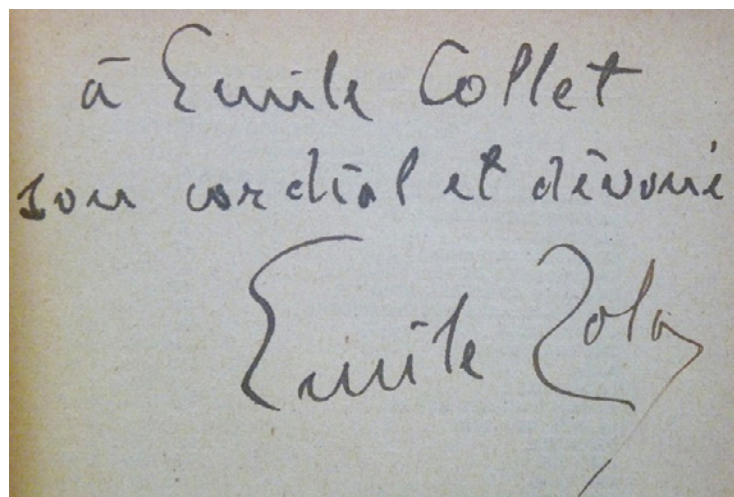 à Emile Collet
son cordial et dévoué
Emile Zola